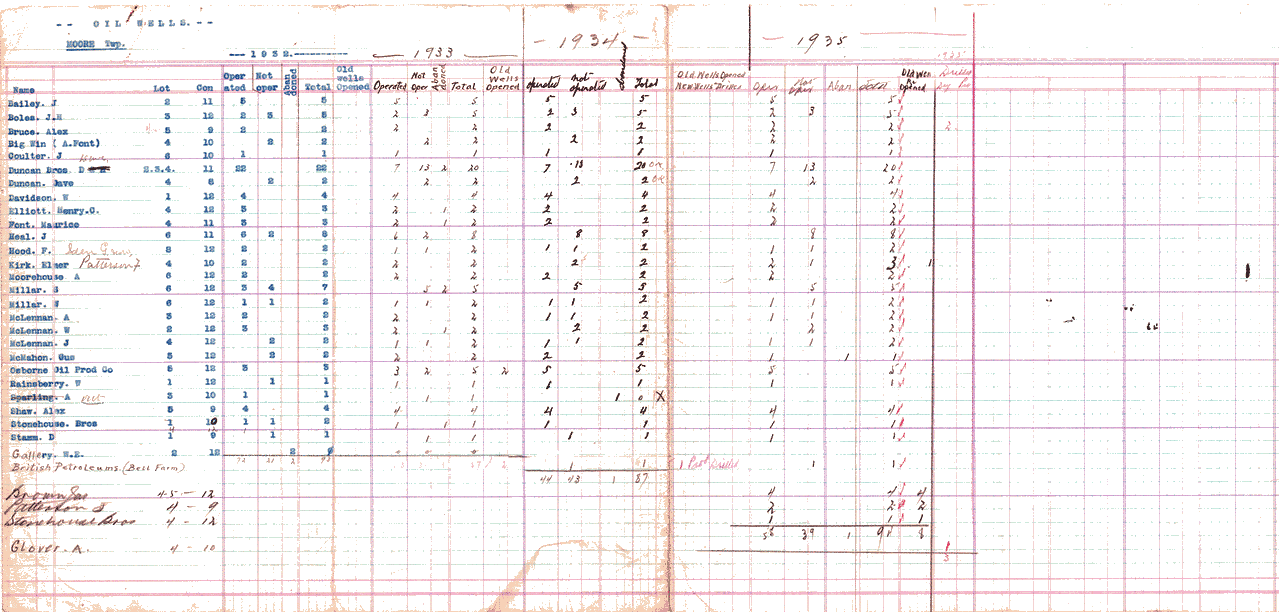 -- OIL WELLS.--
MOORE Twp.
---1932.--- 1933 - 1934 - - 1935
Name Lot Con Oper ated Not oper Aban doned Total Old wells Opened Operated Not Oper Aban doned Total Old Wells Opened operated not operated Total Old Wells Opened New Wells Drilled Oper Not Oper Aban Total Old Wells Opened Drilled
Bailey. J 2 11 5 5 5 5 5 5 5 5
Boles. J.H 3 12 2 3 5 2 3 5 2 3 5 2 3 5
Bruce. Alex 5 9 2 2 2 2 2 2 2 2 2
Big Win ( A.Font) 4 10 2 2 2 2 2 2 2 2
Coulter. J 6 10 1 1 1 1 1 1 1 1
Duncan Bros. D 2.3.4. 11 22 22 7 13 2 20 7 13 20 OK 7 13 20
Duncan. Dave 4 6 2 2 2 2 2 2 OK 2 2
Davidson. W 1 12 4 4 4 4 4 4 4 4
Elliott. Henry.C. 4 12 3 3 2 1 2 2 2 2 2
Font. Maurice 4 11 3 3 2 1 2 2 2 2 2
Heal. J 6 11 6 2 8 6 2 8 8 8 8 8
Hood. F. 8 12 2 2 1 1 2 1 1 2 1 1 2
Kirk. Elmer Patterson 4 10 2 2 2 2 2 2 2 1 3 1
Moorehouse A 6 12 2 2 2 2 2 2 2 2
Millar. S 6 12 3 4 7 5 2 5 5 5 5 5
Millar. W 6 12 1 1 2 1 1 2 1 1 2 1 1 2
McLennan. A 3 12 2 2 2 2 1 1 2 1 1 2
McLennan. W 2 12 3 3 2 1 2 2 2 2 2
McLennan. J 4 12 2 2 1 1 2 1 1 2 1 1 2
McMahon. Gus 5 12 2 2 2 2 2 2 1 1 1
Osborne Oil Prod Co 5 12 3 3 3 2 5 2 5 5 5 5
Rainsberry. W 1 12 1 1 1 1 1 1 1 1
Sparling. A 3 10 1 1 1 1 1 0 X
Shaw. Alex 5 9 4 4 4 4 4 4 4 4
Stonehouse. Bros 1 10 1 1 2 1 1 1 1 1 1 1
Stamm. D 1 9 1 1 1 1 1 1 1 1
Gallery. W.E. 2 12 2
British Petroleums. (Bell Farm) 1 1 1 Drilled 1 1
44 43 1 87
Brown Gas 4-5 - 12 4 4 4
Patterson J 4 - 9 2 2 2
Stonehouse Bros 4 - 12 1 1 1
39 1 8
Glover. A. 4 - 10